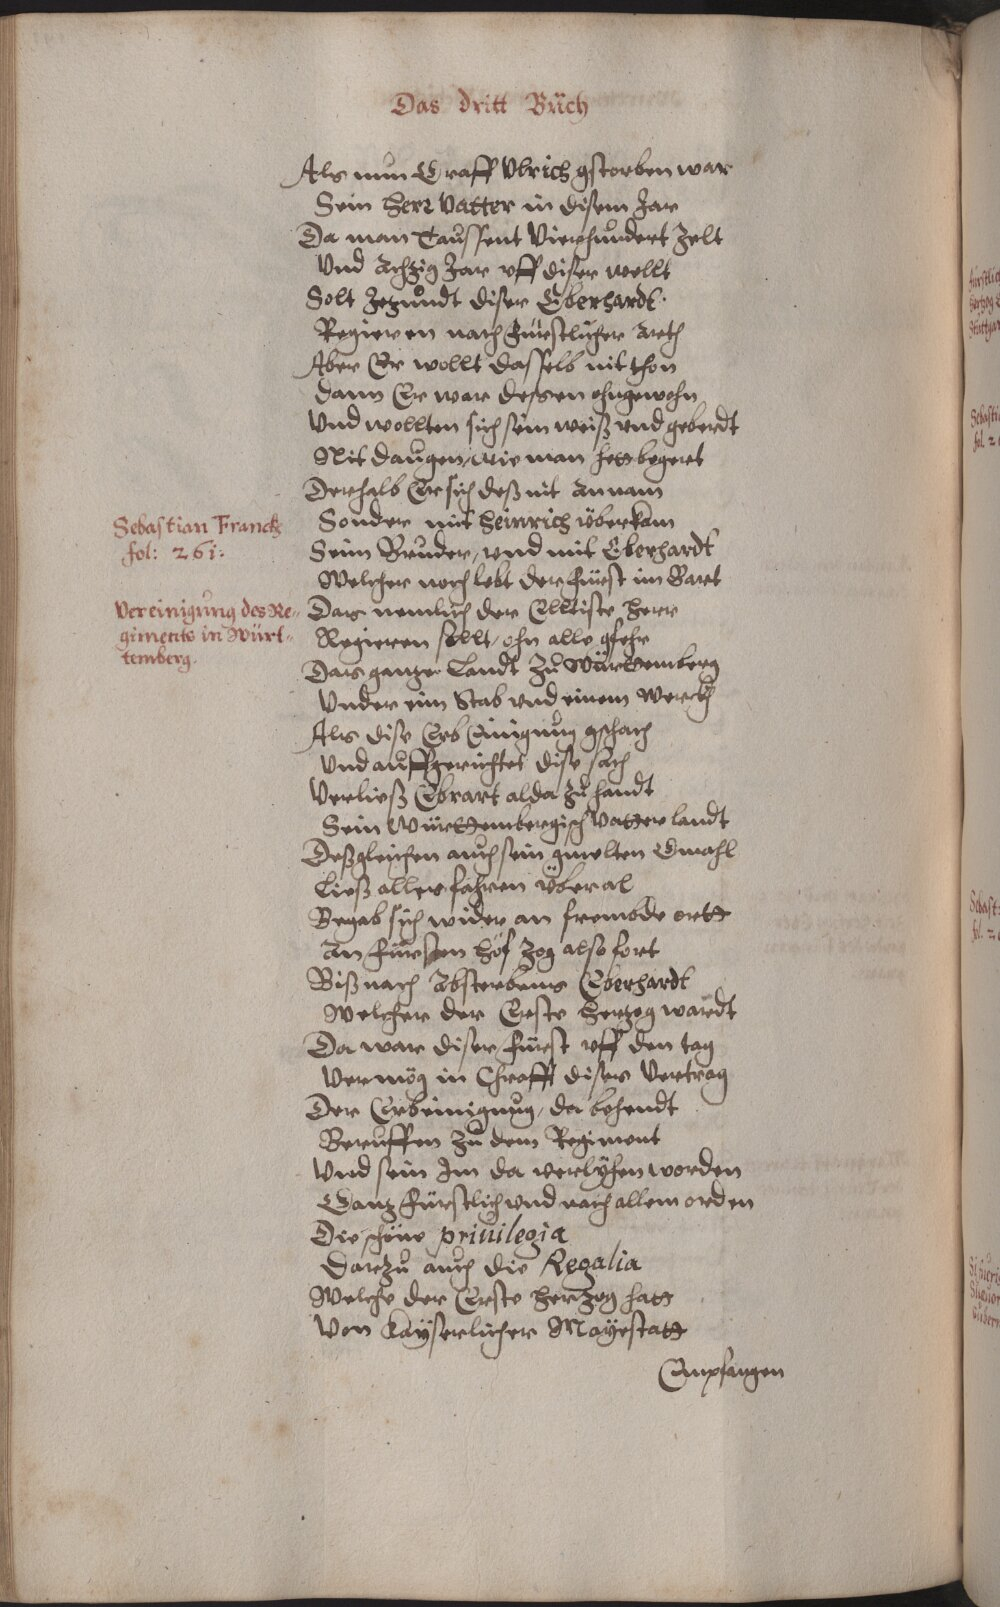 Das dritt Buch
Als nun Graff Vlrich gstorben war
Sein Herr Vatter in disem Jar
Da man Taussent Vierhundert zelt
Vnd Achzig Jar vff diser wellt
Solt Jezundt diser Eberhardt
Regieren nach Fürstlicher Arth
Aber Er wollt dasselb nit thon
Dann Er war dessen ohngewohn
Vnd wollten sich sein weiß vnd geberdt
Nit daugen, wie man hett begert
Derhalb Er sich deß nit Annam
Sonder mit Heinrich überkam
Sebastian Franckh
fol: 261.
Seim Bruder, vnd mit Eberhardt
Welcher noch lebt der Fürst im Bart
Vereinigung des Re-
giments in Würt-
temberg.
Das nemlich der Elltiste Herr
Regieren sollt, ohn alle gfehr
Das ganze Landt zu Württemberg
Vnder eim Stab vnd einem Werckh
Als dise Erb Einigung gschach
Vnd auffgerichtet dise sach
Verließ Ebrart alda zu handt
Sein Württembergisch Vatterlandt
Deßgleichen auch sein gmelten Gmahl
Ließ alles fahren überal
Begab sich wider an frembde ortt
An Fürsten Höf zog also fort
Biß nach Absterbens Eberhardt
Welcher der Erste Herzog wardt
Da war diser Fürst vff den tag
Vermög in Chrafft dises Vertrag
Der Erbeinigung, da behendt
Beruffen zu dem Regiment
Vnd sein Im da verlyhen worden
Ganz Fürstlich vnd nach allem orden
Die schöne priuilegia
Darzu auch die Regalia
Welche der Erste Herzog hatt
Von Kayserlicher Mayestatt
Empfangen